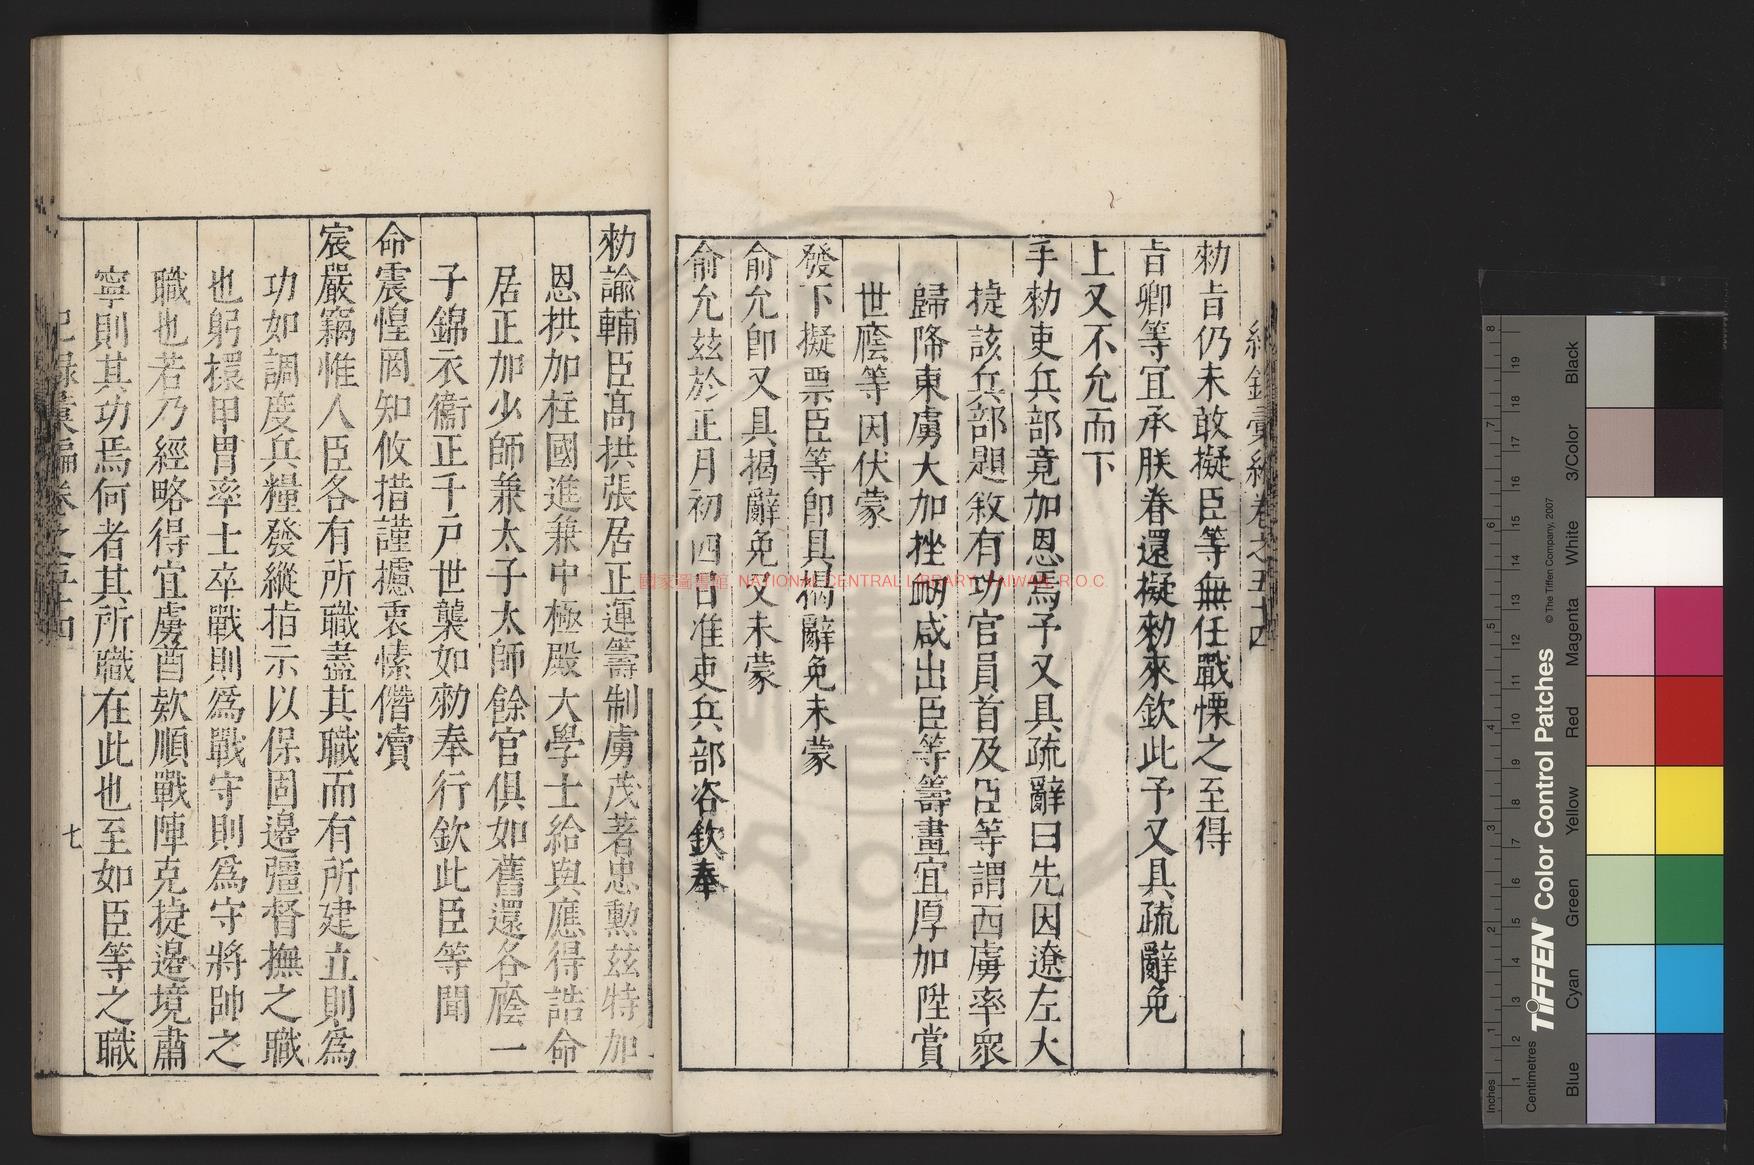 紀錄彙編卷之五十四
勑旨仍未敢擬臣等無任戰慄之至得
旨卿等宜承朕眷還擬勑來欽此予又具疏辭免
上又不允而下
手勑吏兵部竟加恩焉予又具疏辭曰先因遼左大
捷該兵部題敘有功官員首及臣等謂西虜率衆
歸降東虜大加挫衂咸出臣等籌畫宜厚加陞賞
世廕等因伏蒙
發下擬票臣等即具揭辭免未蒙
俞允即又具揭辭免又未蒙
俞允茲於正月初四日准吏兵部咨欽奉
勑諭輔臣高拱張居正運籌制虜茂著忠勳茲特加
恩拱加柱國進兼中極殿大學士給與應得誥命
居正加少師兼太子太師餘官俱如舊還各廕一
子錦衣衞正千戶世襲如勑奉行欽此臣等聞
命震惶罔知攸措謹攄衷愫僭凟
宸嚴竊惟人臣各有所職盡其職而有所建立則爲
功如調度兵糧發縱指示以保固邊疆督撫之職
也躬擐甲冑率士卒戰則爲戰守則爲守將帥之
職也若乃經略得宜虜酋欵順戰陣克捷邊境肅
寧則其功焉何者其所職在此也至如臣等之職
紀錄彙編卷之五十四
七
國家圖書館 NATIONAL CENTRAL LIBRARY, TAIWAN, R.O.C
TIFFEN Color Control Patches
© The Tiffen Company, 2007
Inches
Centimetres
Blue
Cyan
Green
Yellow
Red
Magenta
White
3/Color
Black